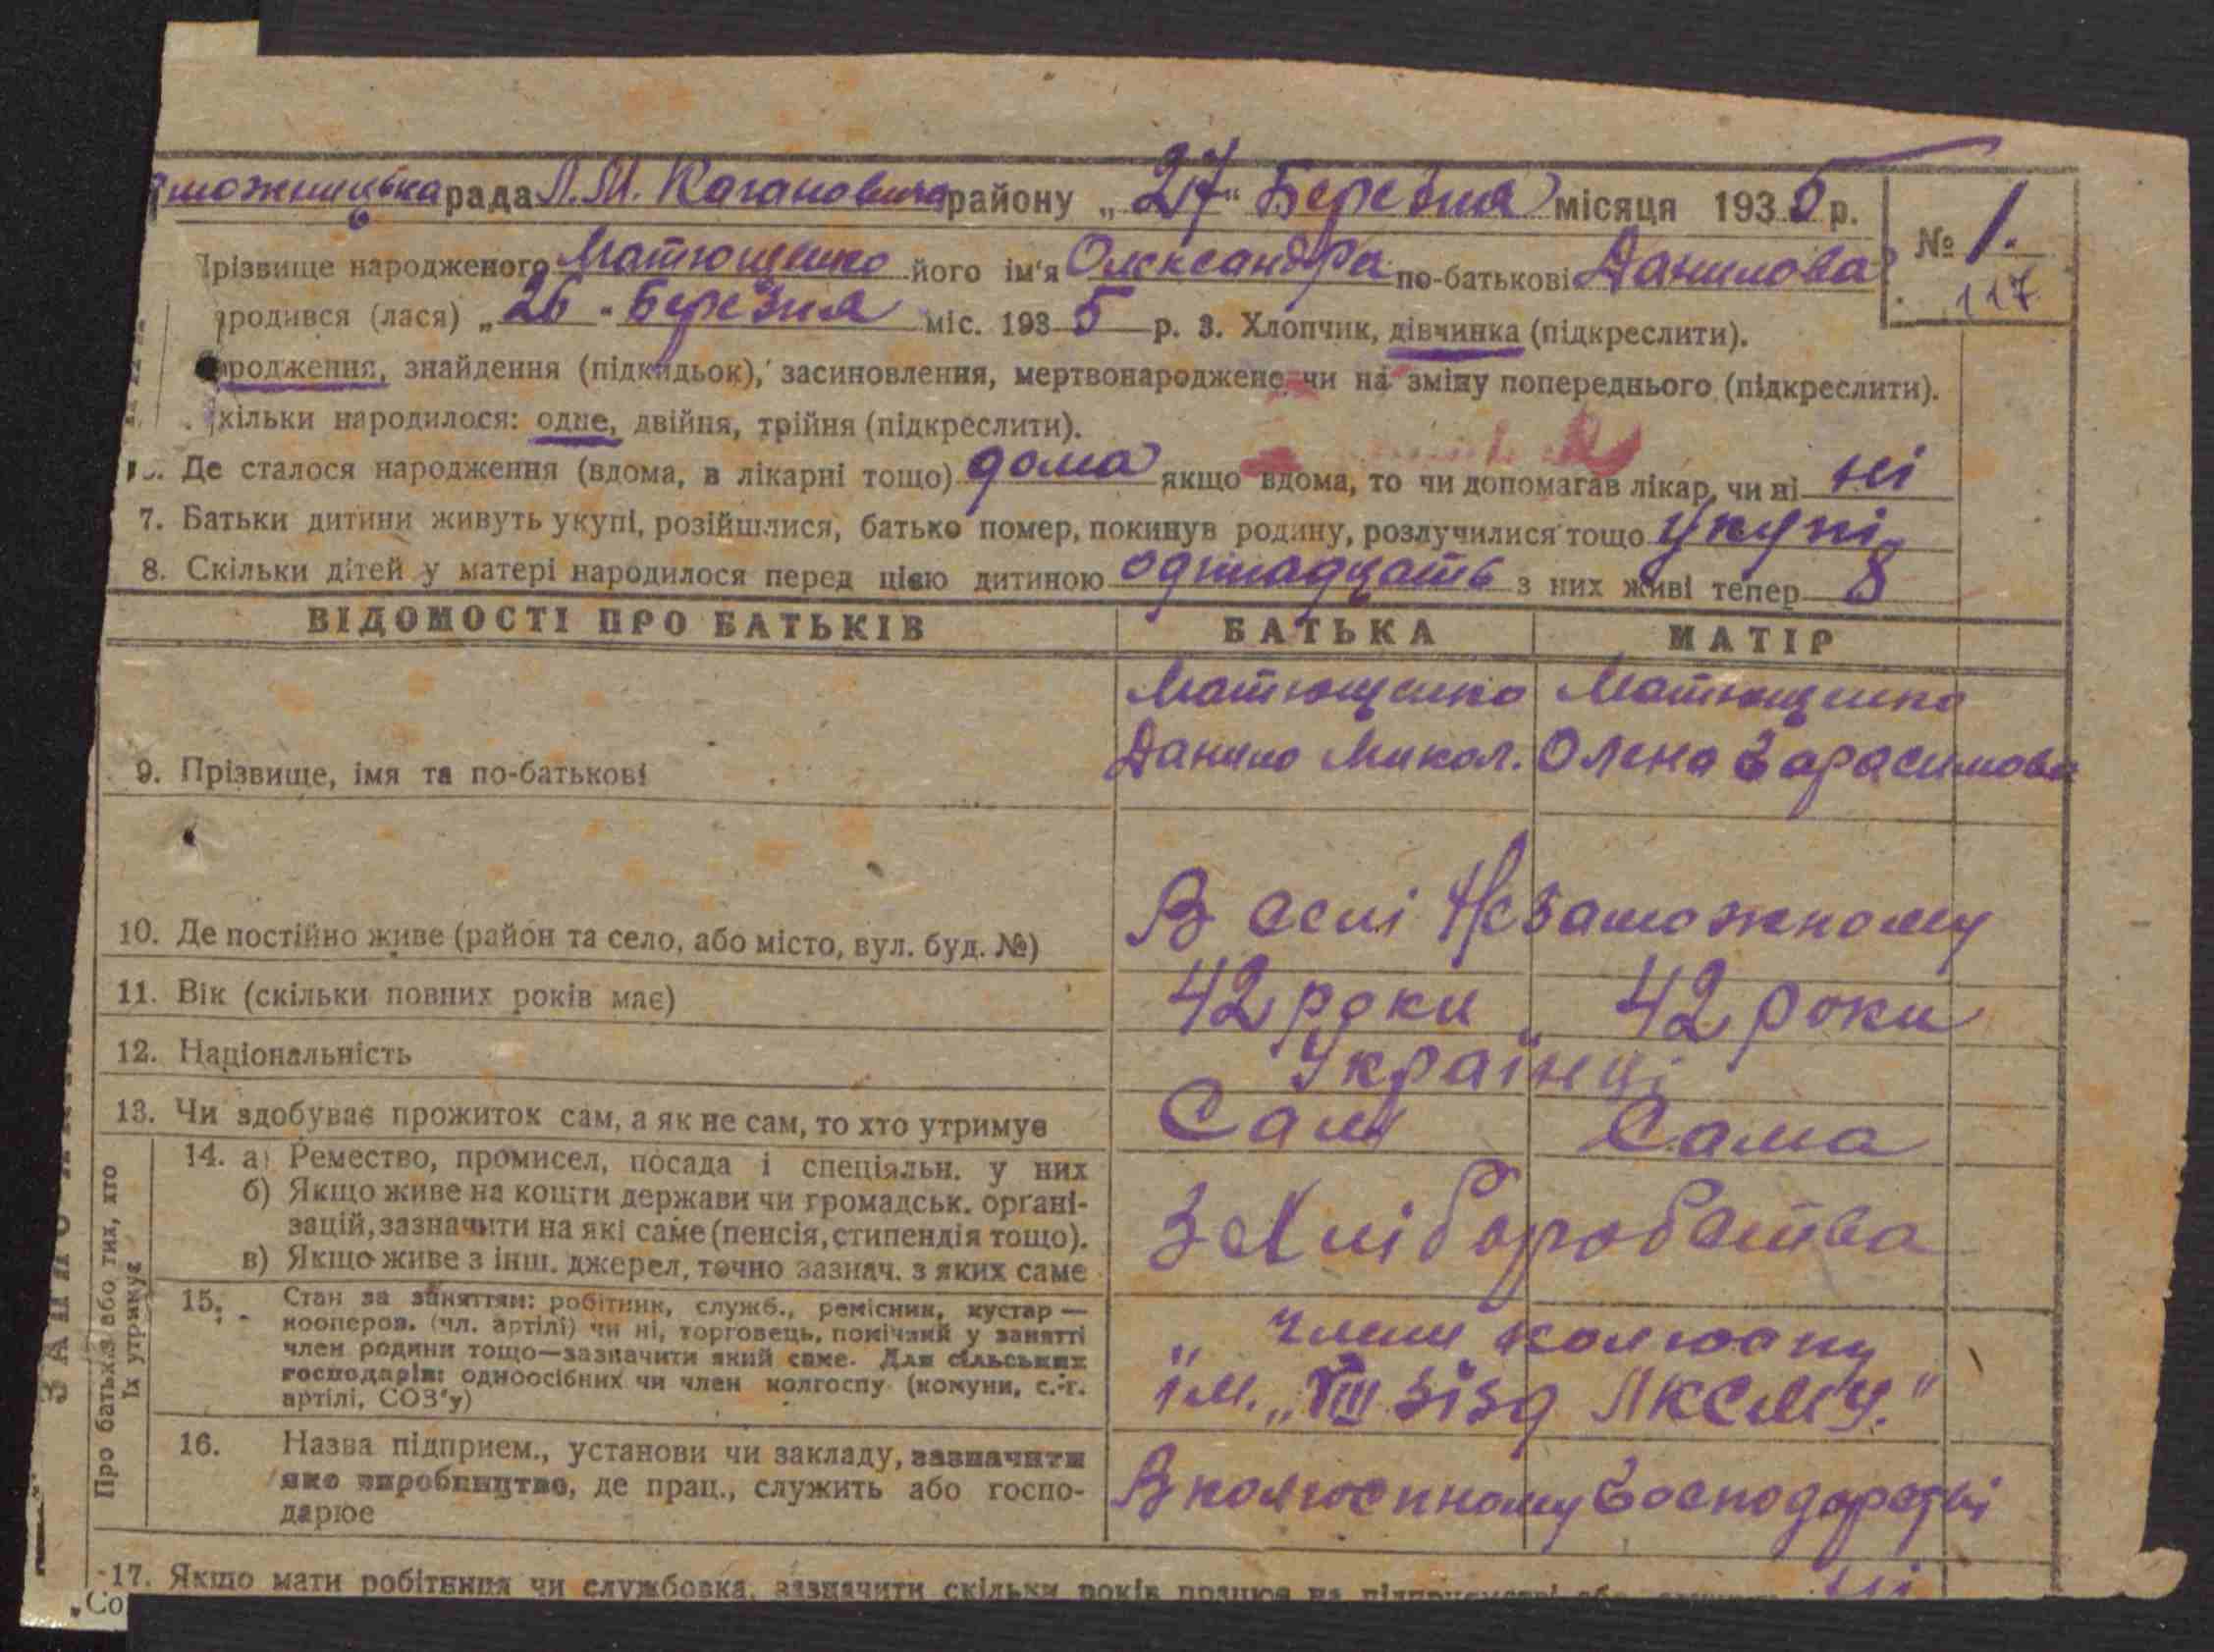 можницька рада Л. М. Кагановича району „27" Березня місяця 1935 р.
№ 1.
117
Прізвище народженого Матющенко його ім'я Олександра по-батькові Данилова
народився (лася) „26" Березня міс. 1935 р. 3. Хлопчик, дівчинка (підкреслити).
народження, знайдення (підкидьок), засиновлення, мертвонароджене чи на зміну попереднього (підкреслити).
Скільки народилося: одне, двійня, трійня (підкреслити).
Де сталося народження (вдома, в лікарні тощо) дома якщо вдома, то чи допомагав лікар, чи ні ні
7. Батьки дитини живуть укупі, розійшлися, батько помер, покинув родину, розлучилися тощо укупі
8. Скільки дітей у матері народилося перед цією дитиною одинадцать з них живі тепер 8
ВІДОМОСТІ ПРО БАТЬКІВ БАТЬКА МАТІР
Матющенко Матющенко
9. Прізвище, імя та по-батькові Данило Микол. Олена Гарасимова
10. Де постійно живе (район та село, або місто, вул. буд. №) В селі Незаможному
11. Вік (скільки повних років має) 42 роки 42 роки
12. Національність Українці
13. Чи здобуває прожиток сам, а як не сам, то хто утримує Сам Сама
Про батьків або тих, хто
їх утримує
14. а) Ремество, промисел, посада і спеціяльн. у них
б) Якщо живе на кошти держави чи громадськ. орґані-
зацій, зазначити на які саме (пенсія, стипендія тощо).
в) Якщо живе з інш. джерел, точно зазнач. з яких саме
З хліборобства
15. Стан за заняттям: робітник, служб., ремісник, кустар —
кооперов. (чл. артілі) чи ні, торговець, помічний у занятті
член родини тощо—зазначити який саме. Для сільських
господарів: одноосібних чи член колгоспу (комуни, с.-г.
артілі, СОЗ'у)
„ члени колгоспу
ім. „VIII зїзд ЛКСМУ."
16. Назва підприєм., установи чи закладу, зазначити
яке виробництво, де прац., служить або госпо-
дарює
В колгоспному господарстві
17. Якщо мати робітниця чи службовка, зазначити скільки років працює на підприємстві або ні
„Со